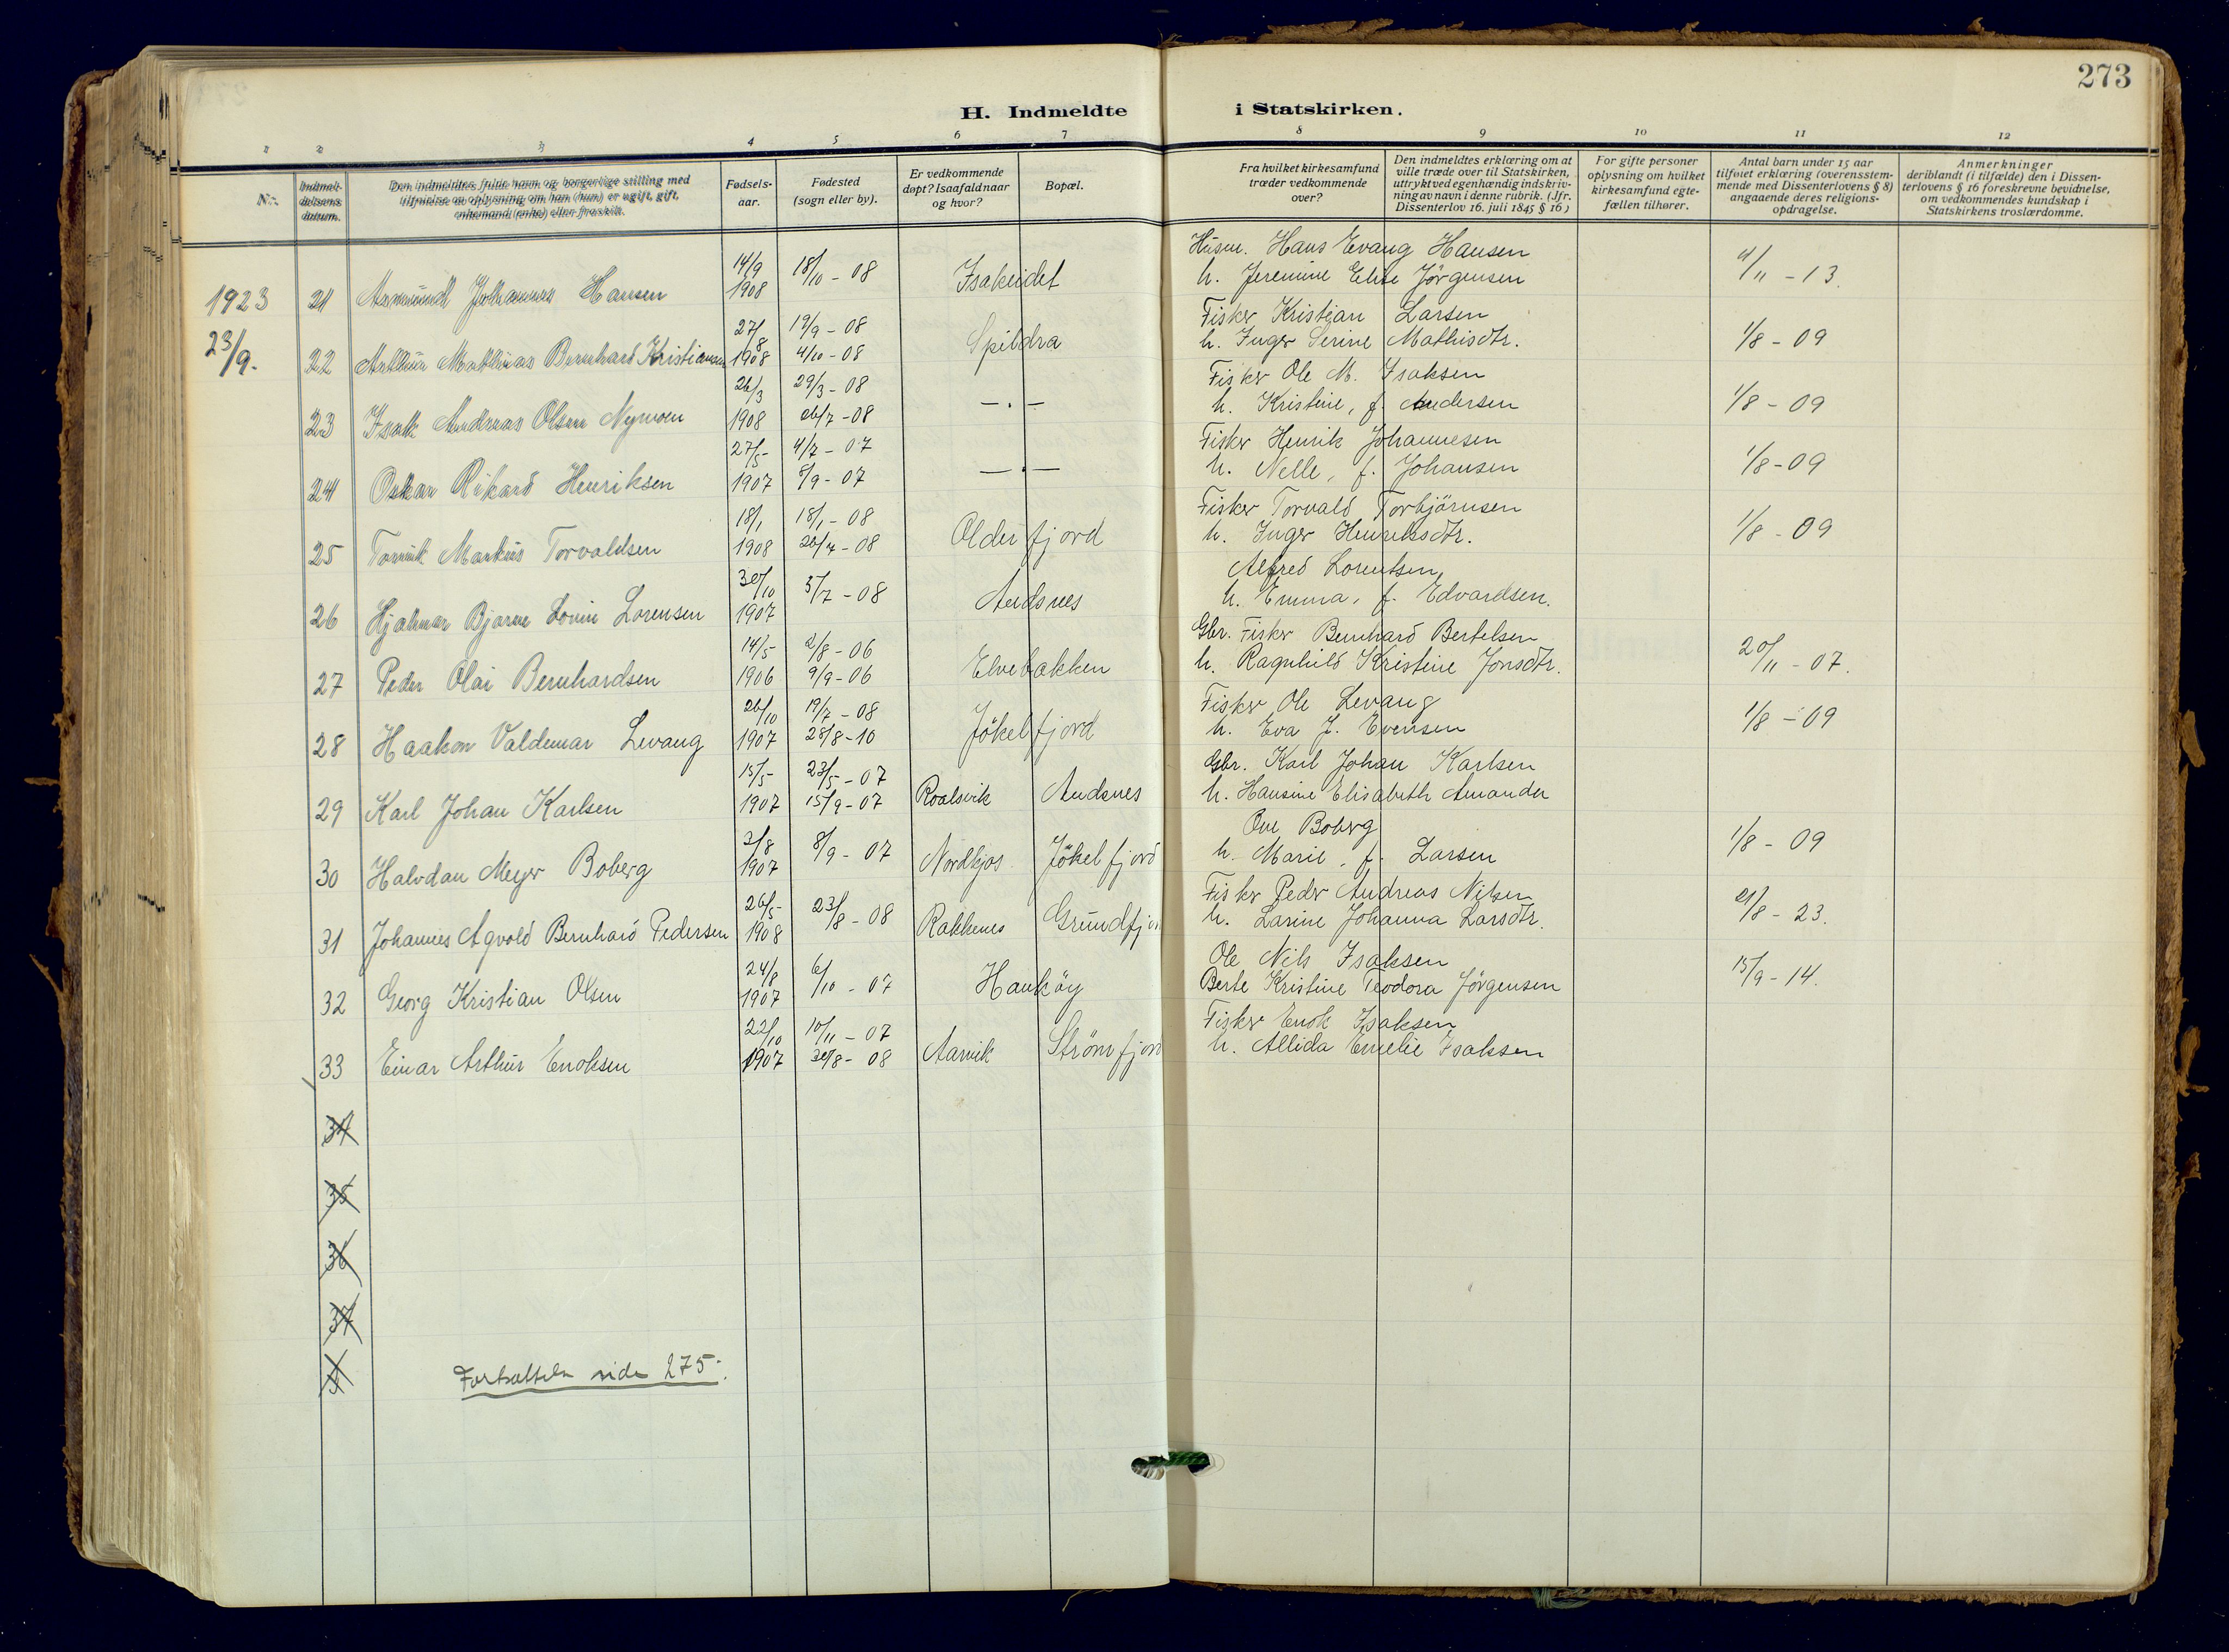 273
H. Indmeldte i Statskirken.
1 2 3 4 5 6 7 8 9 10 11 12
Nr.
Indmel-
delsens
datum.
Den indmeldtes fulde navn og borgerlige stilling med
tilføielse av oplysning om han (hun) er ugift, gift,
enkemand (enke) eller fraskilt.
Fødsels-
aar.
Fødested
(sogn eller by).
Er vedkommende
døpt? Isaafald naar
og hvor?
Bopæl.
Fra hvilket kirkesamfund
træder vedkommende
over?
Den indmeldtes erklæring om at
ville træde over til Statskirken,
uttrykt ved egenhændig indskriv-
ning av navn i denne rubrik. (Jfr.
Dissenterlov 16. juli 1845 § 16)
For gifte personer
oplysning om hvilket
kirkesamfund egte-
fællen tilhører.
Antal barn under 15 aar
tilføiet erklæring (overensstem-
mende med Dissenterlovens § 8)
angaaende deres religions-
opdragelse.
Anmerkninger
deriblandt (i tilfælde) den i Dissen-
terlovens § 16 foreskrevne bevidnelse,
om vedkommendes kundskap i
Statskirkens troslærdomme.
14/9 18/10 - 08 Husm. Hans Evang Hansen
1923 21 Johannes Hansen 1908 Isakeidet h. Jeremine Elise Jørgensen /11 - 13.
27/8 19/9 - 08 Fisker Kristian Larsen
23/9. 22 Arthur Mathias Bernhard Kristiansen 1908 4/10 - 08 Spildra h. Inger Serine Mathisdtr. 1/8 - 09
26/3 29/3 - 08 Fisker Ole M. Isaksen
23 Isak Andreas Olsen Nymoen 1908 26/7 - 08 — . — h. Kristine, f. Andersen 1/8 - 09
27/5 - 4/7 - 07 Fisker Henrik Johannesen
24 Oskar Rikard Henriksen 1907 8/9 - 07 — . — h. Nelle, f. Johansen 1/8 - 09
18/1 18/1 - 08 Fisker Torvald Torbjörnsen
25 Markus Torvaldsen 1908 26/4 - 08 Olderfjord h. Inger Henriksdtr. 1/8 - 09
30/10 5/7 - 08 Alfred Lorentsen,
26 Hjalmar Bjarne Lorensen 1907 Andsnes h. Emma, f. Edvardsen.
14/5 - 2/8 - 06 Gbr. Fisker Bernhard Bertelsen
27 Peder Olai Bernhardsen 1906 9/9 - 06 Elvebakken h. Ragnhild Kristine Jonsdtr. 20/11 - 07.
26/10 19/7 - 08 Fisker Ole Levang
28 Haakon Valdemar Levang 1907 28/8 - 10 Jökelfjord h. Eva J. Evensen 1/8 - 09
15/5 - 23/5 - 07 Gbr. Karl Johan Karlsen
29 Karl Johan Karlsen 1907 15/9 - 07 Roalsvik Andsnes h. Hansine Elisabeth Amanda
3/8 8/9 - 07 Ove Boberg
30 Halvdan Meyer Boberg 1907 Nordkjos Jökelfjord h. Marie, f. Larsen 1/8 - 09
26/5 - 23/8 - 08 Fisker Peder Andreas Nilsen
31 Johannes Agvald Bernhard Pedersen 1908 Rakkenes Grundfjor h. Larine Johanna Larsdtr. 21/8 - 23.
24/8 6/10 - 07 Ole Nils Isaksen
32 Georg Kristian Olsen 1907 Hauköy Berte Kristine Teodora Jørgensen 15/9 - 14.
22/10 10/11 - 07 Fisker Enok Isaksen
33 Einar Arthur Enoksen 1907 30/8 - 08 Aarvik Strømfjord h. Allida Emelie Isaksen
34
35
36
37
Fortsættelse side 275.